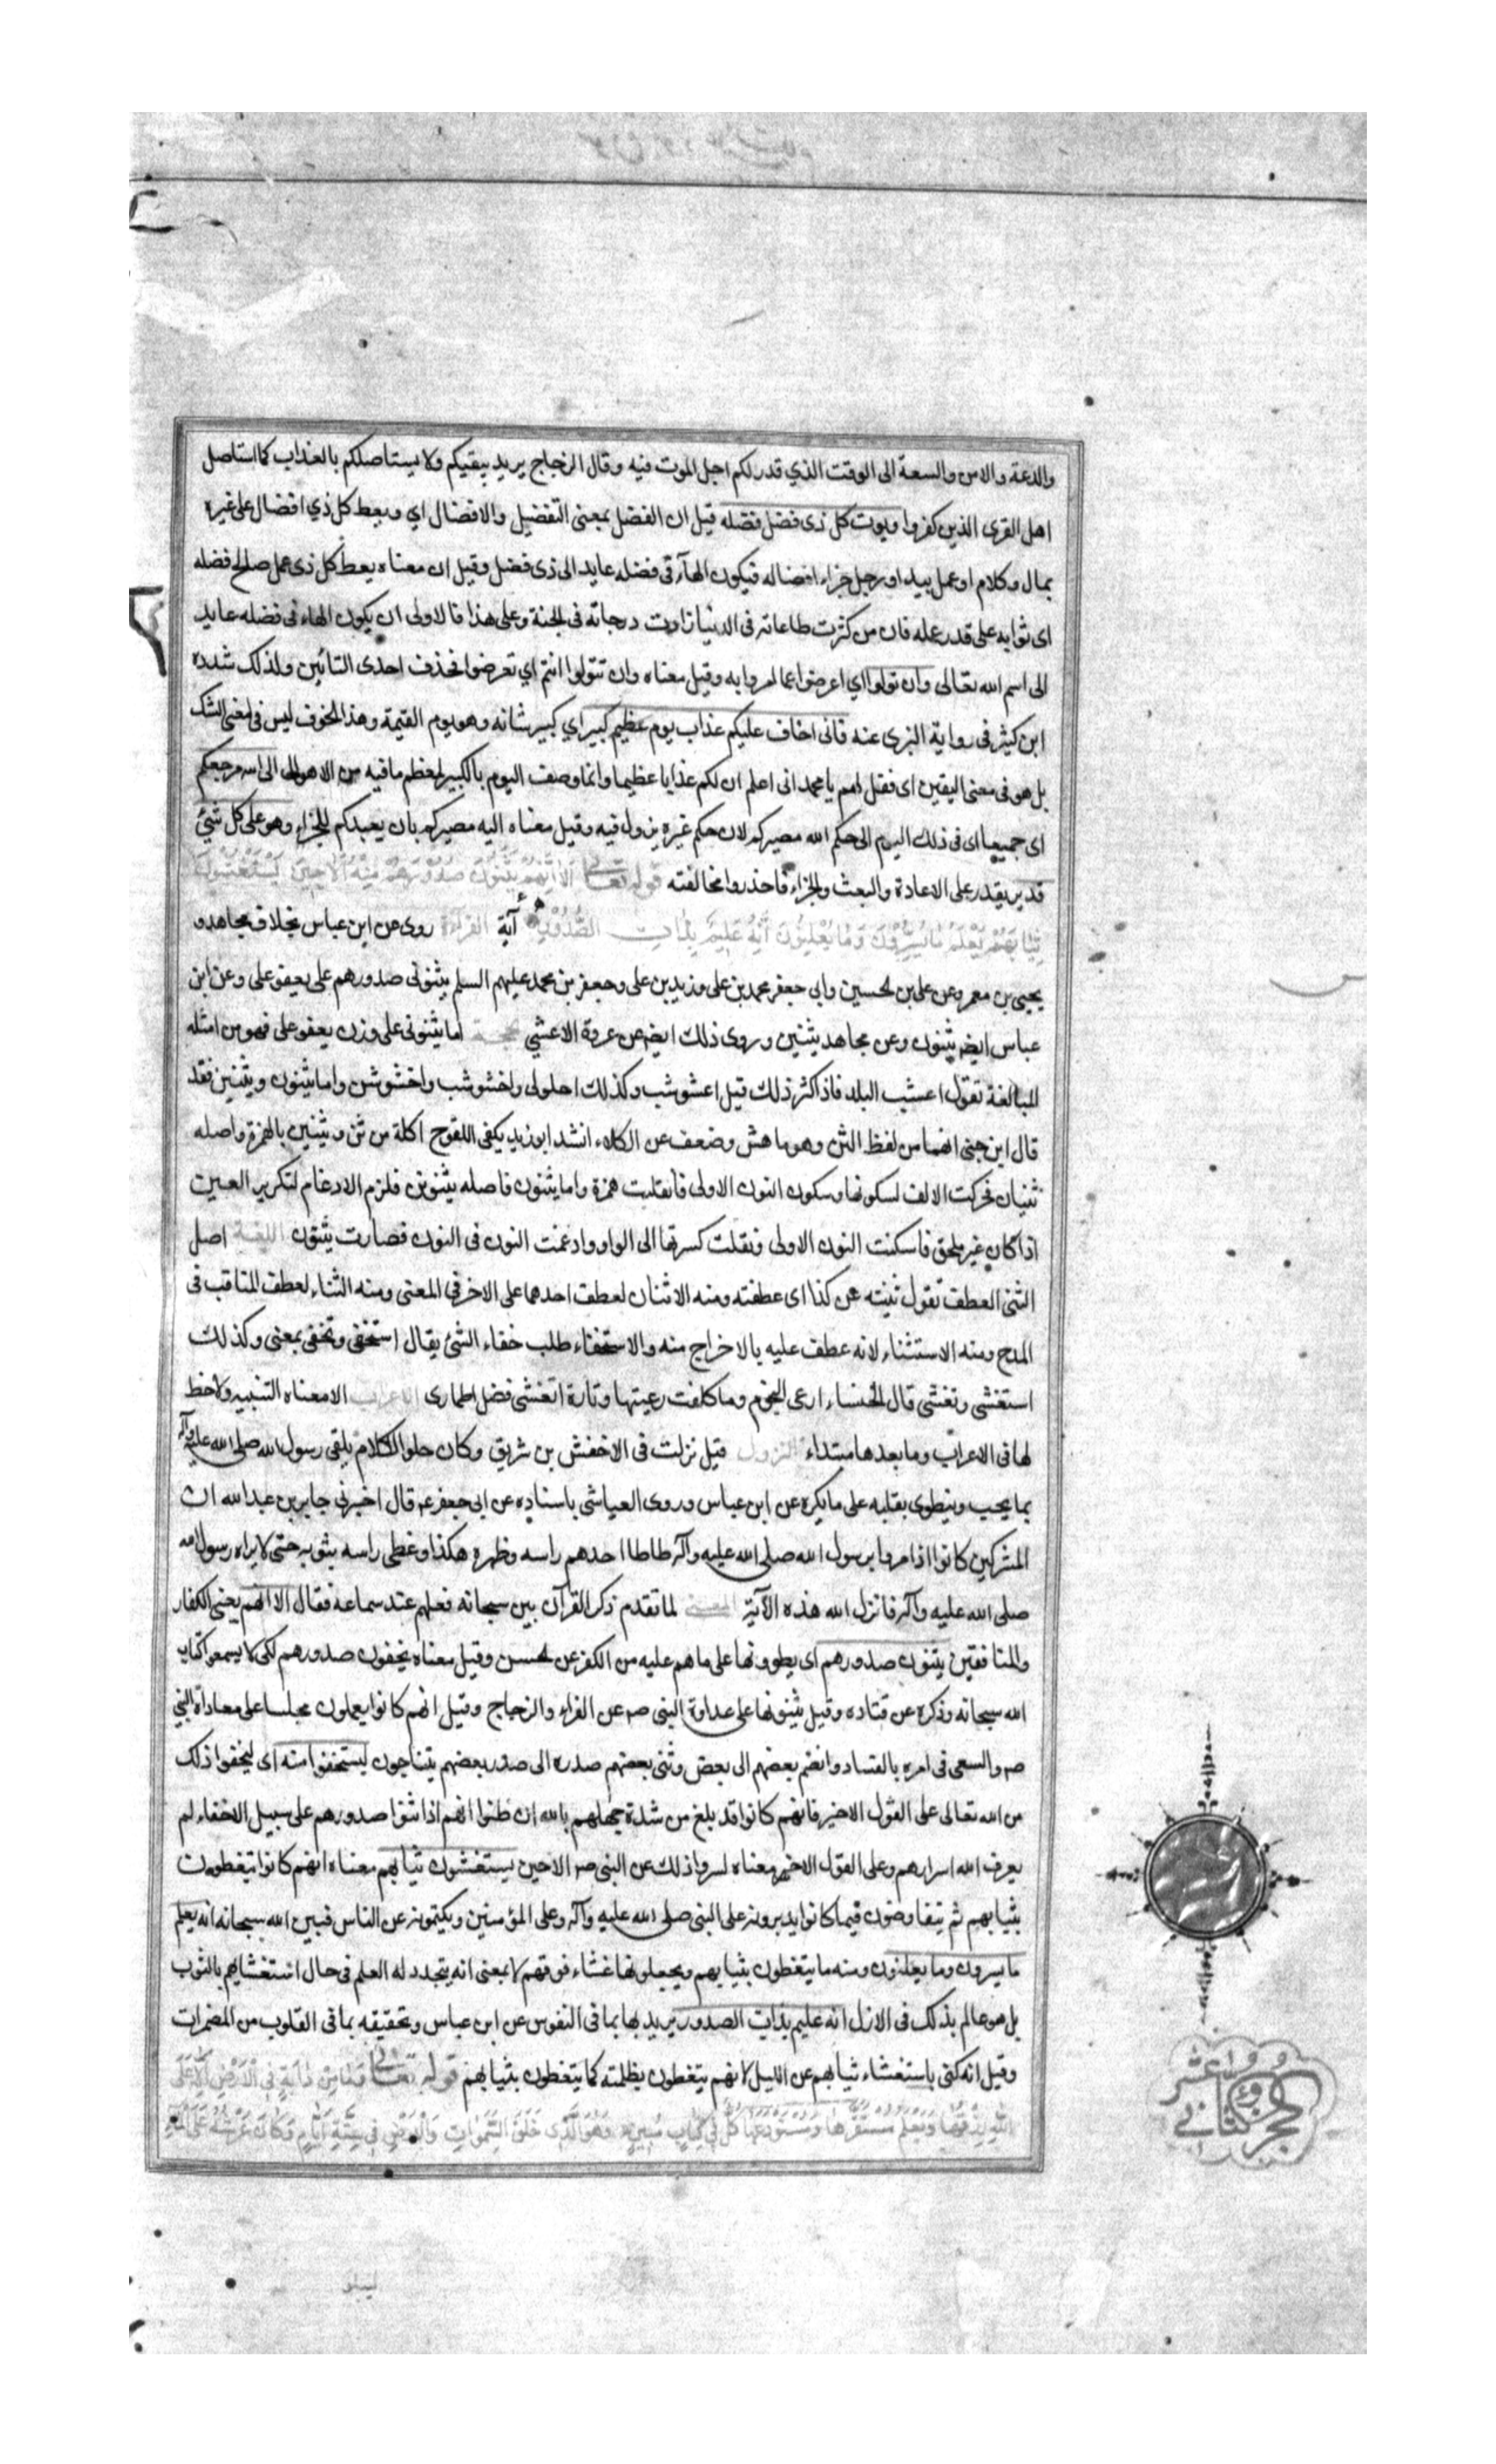 والدعة والامن والسعة الى الوقت الذي قدر لكم اجل الموت فيه وقال الزجاج يريد يبقيكم ولا يستاصلكم بالعذاب كما استاصل
اهل القرى الذين كفروا ويوت كل ذى فضل فضله قيل ان الفضل بمعنى التفضيل والافضال اي ويعط كل ذي افضال على غيره
بمال وكلام او عمل بيد او رجل جزاء افضاله فيكون الهآء في فضله عايد الى ذى فضل وقيل ان معناه يعط كل ذى عمل صالح فضله
اى ثوابه على قدر عمله فان من كثرت طاعاته فى الدنيا زادت درجاته فى الجنة وعلى هذا فالاولى ان يكون الهاء فى فضله عايد
الى اسم الله تعالى وان تولوا اي اعرضوا عما امروا به وقيل معناه وان تتولوا انتم اي تعرضوا فحذف احدى التائين ولذلك شدده
ابن كثير فى رواية البزى عنه فانى اخاف عليكم عذاب يوم عظيم كبير اي كبير شانه وهو يوم القيمة وهذا الخوف ليس فى معنى الشك
بل هو فى معنى اليقين اى فقل لهم يا محمد انى اعلم ان لكم عذابا عظيما وانما وصف اليوم بالكبير لعظم ما فيه من الاهوال الى الله مرجعكم
اى جميعا اى فى ذلك اليوم الى حكم الله مصيركم لان حكم غيره يزول فيه وقيل معناه اليه مصيركم بان يعيدكم للجزاء وهو على كل شئ
قدير يقدر على الاعادة والبعث والجزاء فاحذروا مخالفته قوله تعالى اَلا اِنَّهُمْ يَثْنُونَ صُدُورَهُمْ لِيَسْتَخْفُوا مِنْهُ اَلا حِينَ يَسْتَغْشُونَ
ثِيَابَهُمْ يَعْلَمُ مَا يُسِرُّونَ وَمَا يُعْلِنُونَ اِنَّهُ عَلِيمٌ بِذَاتِ الصُّدُورِ آية القراءة روى عن ابن عباس بخلاف مجاهد و
يحيى بن معمر وعن على بن الحسين وابي جعفر محمد بن على وزيد بن على وجعفر بن محمد عليهم السلم يثنونى صدورهم على يعفوعلى وعن ابن
عباس ايضا يثنون وعن مجاهد يثنين وروى ذلك ايضا عن عروة الاعشي الحجة اما يثنونى على وزن يعفوعلى فهو من امثله
المبالغة تقول اعشب البلد فاذا كثر ذلك قيل اعشوشب وكذلك احلولى واخشوشب واخشوشن واما يثنون ويثنين فقد
قال ابن جنى انهما من لفظ الثن وهو ما هش وضعف عن الكلاء انشد ابو زيد يكفى اللقوح اكلة من ثن ويثنين بالهمزة واصله
ثنيان فحركت الالف لسكونها وسكون النون الاولى فانقلبت همزة واما يثنون فاصله يثنونن فلزم الادغام لتكرير العين
اذا كان غير ملحق فاسكنت النون الاولى ونقلت كسرتها الى الواو وادغمت النون فى النون فصارت يثنون اللغة اصل
الثنى العطف تقول ثنيته عن كذا اى عطفته ومنه الاثنان لعطف احدهما على الاخر في المعنى ومنه الثناء لعطف المناقب فى
المدح ومنه الاستثناء لانه عطف عليه بالاخراج منه والاستخفاء طلب خفاء الشئ يقال استخفى وتخفى بمعنى وكذلك
استغشى وتغشى قال الخنساء ارعى النجوم وما كلفت رعيتها وتارة اتغشى فضل اطمارى الاعراب الا معناه التنبيه ولا حظ
لها فى الاعراب وما بعدها مبتداء النزول قيل نزلت فى الاخفش بن شريق وكان حلو الكلام يلقى رسول الله صلى الله عليه وآله
بما يحب وينطوى بقلبه على ما يكره عن ابن عباس وروى العياشى باسناده عن ابى جعفر ع قال اخبرنى جابر بن عبد الله ان
المشركين كانوا اذا مروا برسول الله صلى الله عليه وآله طاطا احدهم راسه وظهره هكذا وغطى راسه بثوبه حتى لا يراه رسول الله
صلى الله عليه وآله فانزل الله هذه الآية المعنى لما تقدم ذكر القرآن بين سبحانه فعلهم عند سماعه فقال الا انهم يعنى الكفار
والمنافقين يثنون صدورهم اى يطوونها على ما هم عليه من الكفر عن الحسن وقيل معناه يخفون صدورهم لكى لا يسمعوا كتاب
الله سبحانه وذكره عن قتاده وقيل يثنونها على عداوة النبى ص عن الفراء والزجاج وقيل انهم كانوا يعملون مجلسا على معاداة النبي
ص والسعى فى امره بالفساد وانضم بعضهم الى بعض وثنى بعضهم صدره الى صدر بعضهم يتناجون ليستخفوا منه اى ليخفوا ذلك
من الله تعالى على القول الاخير فانهم كانوا قد بلغ من شدة جهلهم بالله ان ظنوا انهم اذا ثنوا صدورهم على سبيل الاخفاء لم
يعرف الله اسرارهم وعلى القول الاخر معناه لسروا ذلك عن النبى ص الا حين يستغشون ثيابهم معناه انهم كانوا يتغطون
بثيابهم ثم يتفاوضون فيما كانوا يدبرونه على النبى صلى الله عليه وآله وعلى المؤمنين ويكتمونه عن الناس فبين الله سبحانه انه يعلم
ما يسرون وما يعلنون ومنه ما يتغطون بثيابهم ويجعلونها غشاء فوقهم لا بمعنى انه يتجدد له العلم فى حال استغشايهم بالثوب
بل هو عالم بذلك فى الازل انه عليم بذات الصدور يريد بها بما فى النفوس عن ابن عباس وتحقيقه بما فى القلوب من المضمرات
وقيل انه كنى باستغشاء ثيابهم عن الليل لانهم يتغطون بظلمته كما يتغطون بثيابهم قوله تعالى وَمَا مِنْ دَابَّةٍ فِى الْاَرْضِ اِلَّا عَلَى
اللهِ رِزْقُهَا وَيَعْلَمُ مُسْتَقَرَّهَا وَمُسْتَوْدَعَهَا كُلٌّ فِى كِتَابٍ مُبِينٍ وَهُوَ الَّذِى خَلَقَ السَّمٰوَاتِ وَالْاَرْضَ فِى سِتَّةِ اَيَّامٍ وَكَانَ عَرْشُهُ عَلَى الْمَاءِ
الجزؤ الثانى عشر